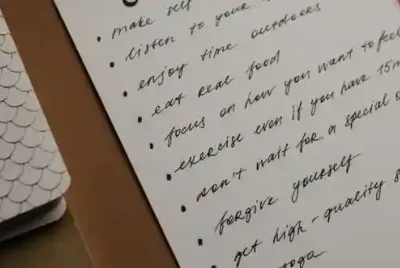 • make self
• listen to your
• enjoy time outdoors
• eat real food
• focus on how you want to feel
• exercise even if you have 15m
• don't wait for a special o
• forgive yourself
• get high-quality s
yoga